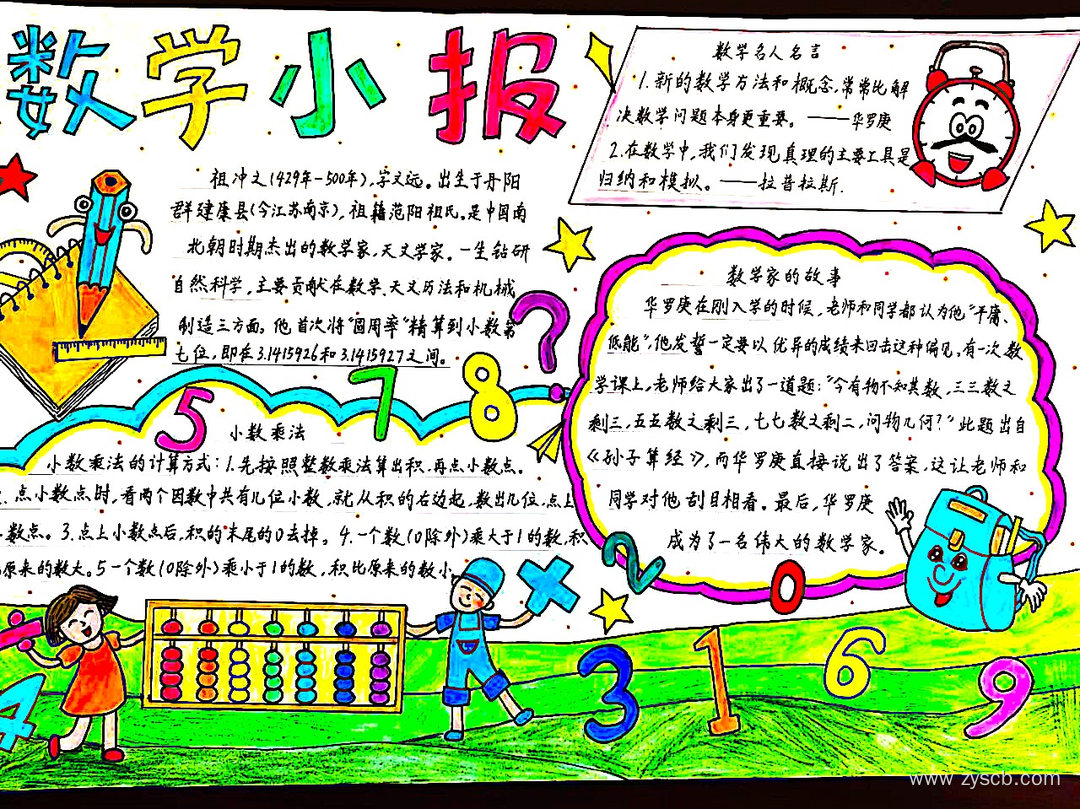 数学小报
数学名人名言
1.新的数学方法和概念,常常比解
决数学问题本身更重要。——华罗庚
2.在数学中,我们发现真理的主要工具是
归纳和模拟。——拉普拉斯.
祖冲之(429年-500年),字文远。出生于丹阳
群建康县(今江苏南京),祖籍范阳祖氏。是中国南
北朝时期杰出的数学家,天文学家。一生钻研
自然科学,主要贡献在数学、天文历法和机械
制造三方面。他首次将"圆周率"精算到小数第
七位,即在3.1415926和3.1415927之间。
小数乘法
小数乘法的计算方式:1.先按照整数乘法算出积,再点小数点。
点小数点时,看两个因数中共有几位小数,就从积的右边起,数出几位,点上
数点。3.点上小数点后,积的末尾的0去掉。4.一个数(0除外)乘大于1的数,积
原来的数大。5一个数(0除外)乘小于1的数,积比原来的数小
数学家的故事
华罗庚在刚入学的时候,老师和同学都认为他"平庸、
低能",他发誓一定要以优异的成绩来回击这种偏见。有一次数
学课上,老师给大家出了一道题:"今有物不知其数,三三数之
剩三,五五数之剩三,七七数之剩二,问物几何?"此题出自
《孙子算经》,而华罗庚直接说出了答案,这让老师和
同学对他刮目相看。最后,华罗庚
成为了一名伟大的数学家。
?
5 7 8
2 0
4 3 1 6 9
www.zyscb.com